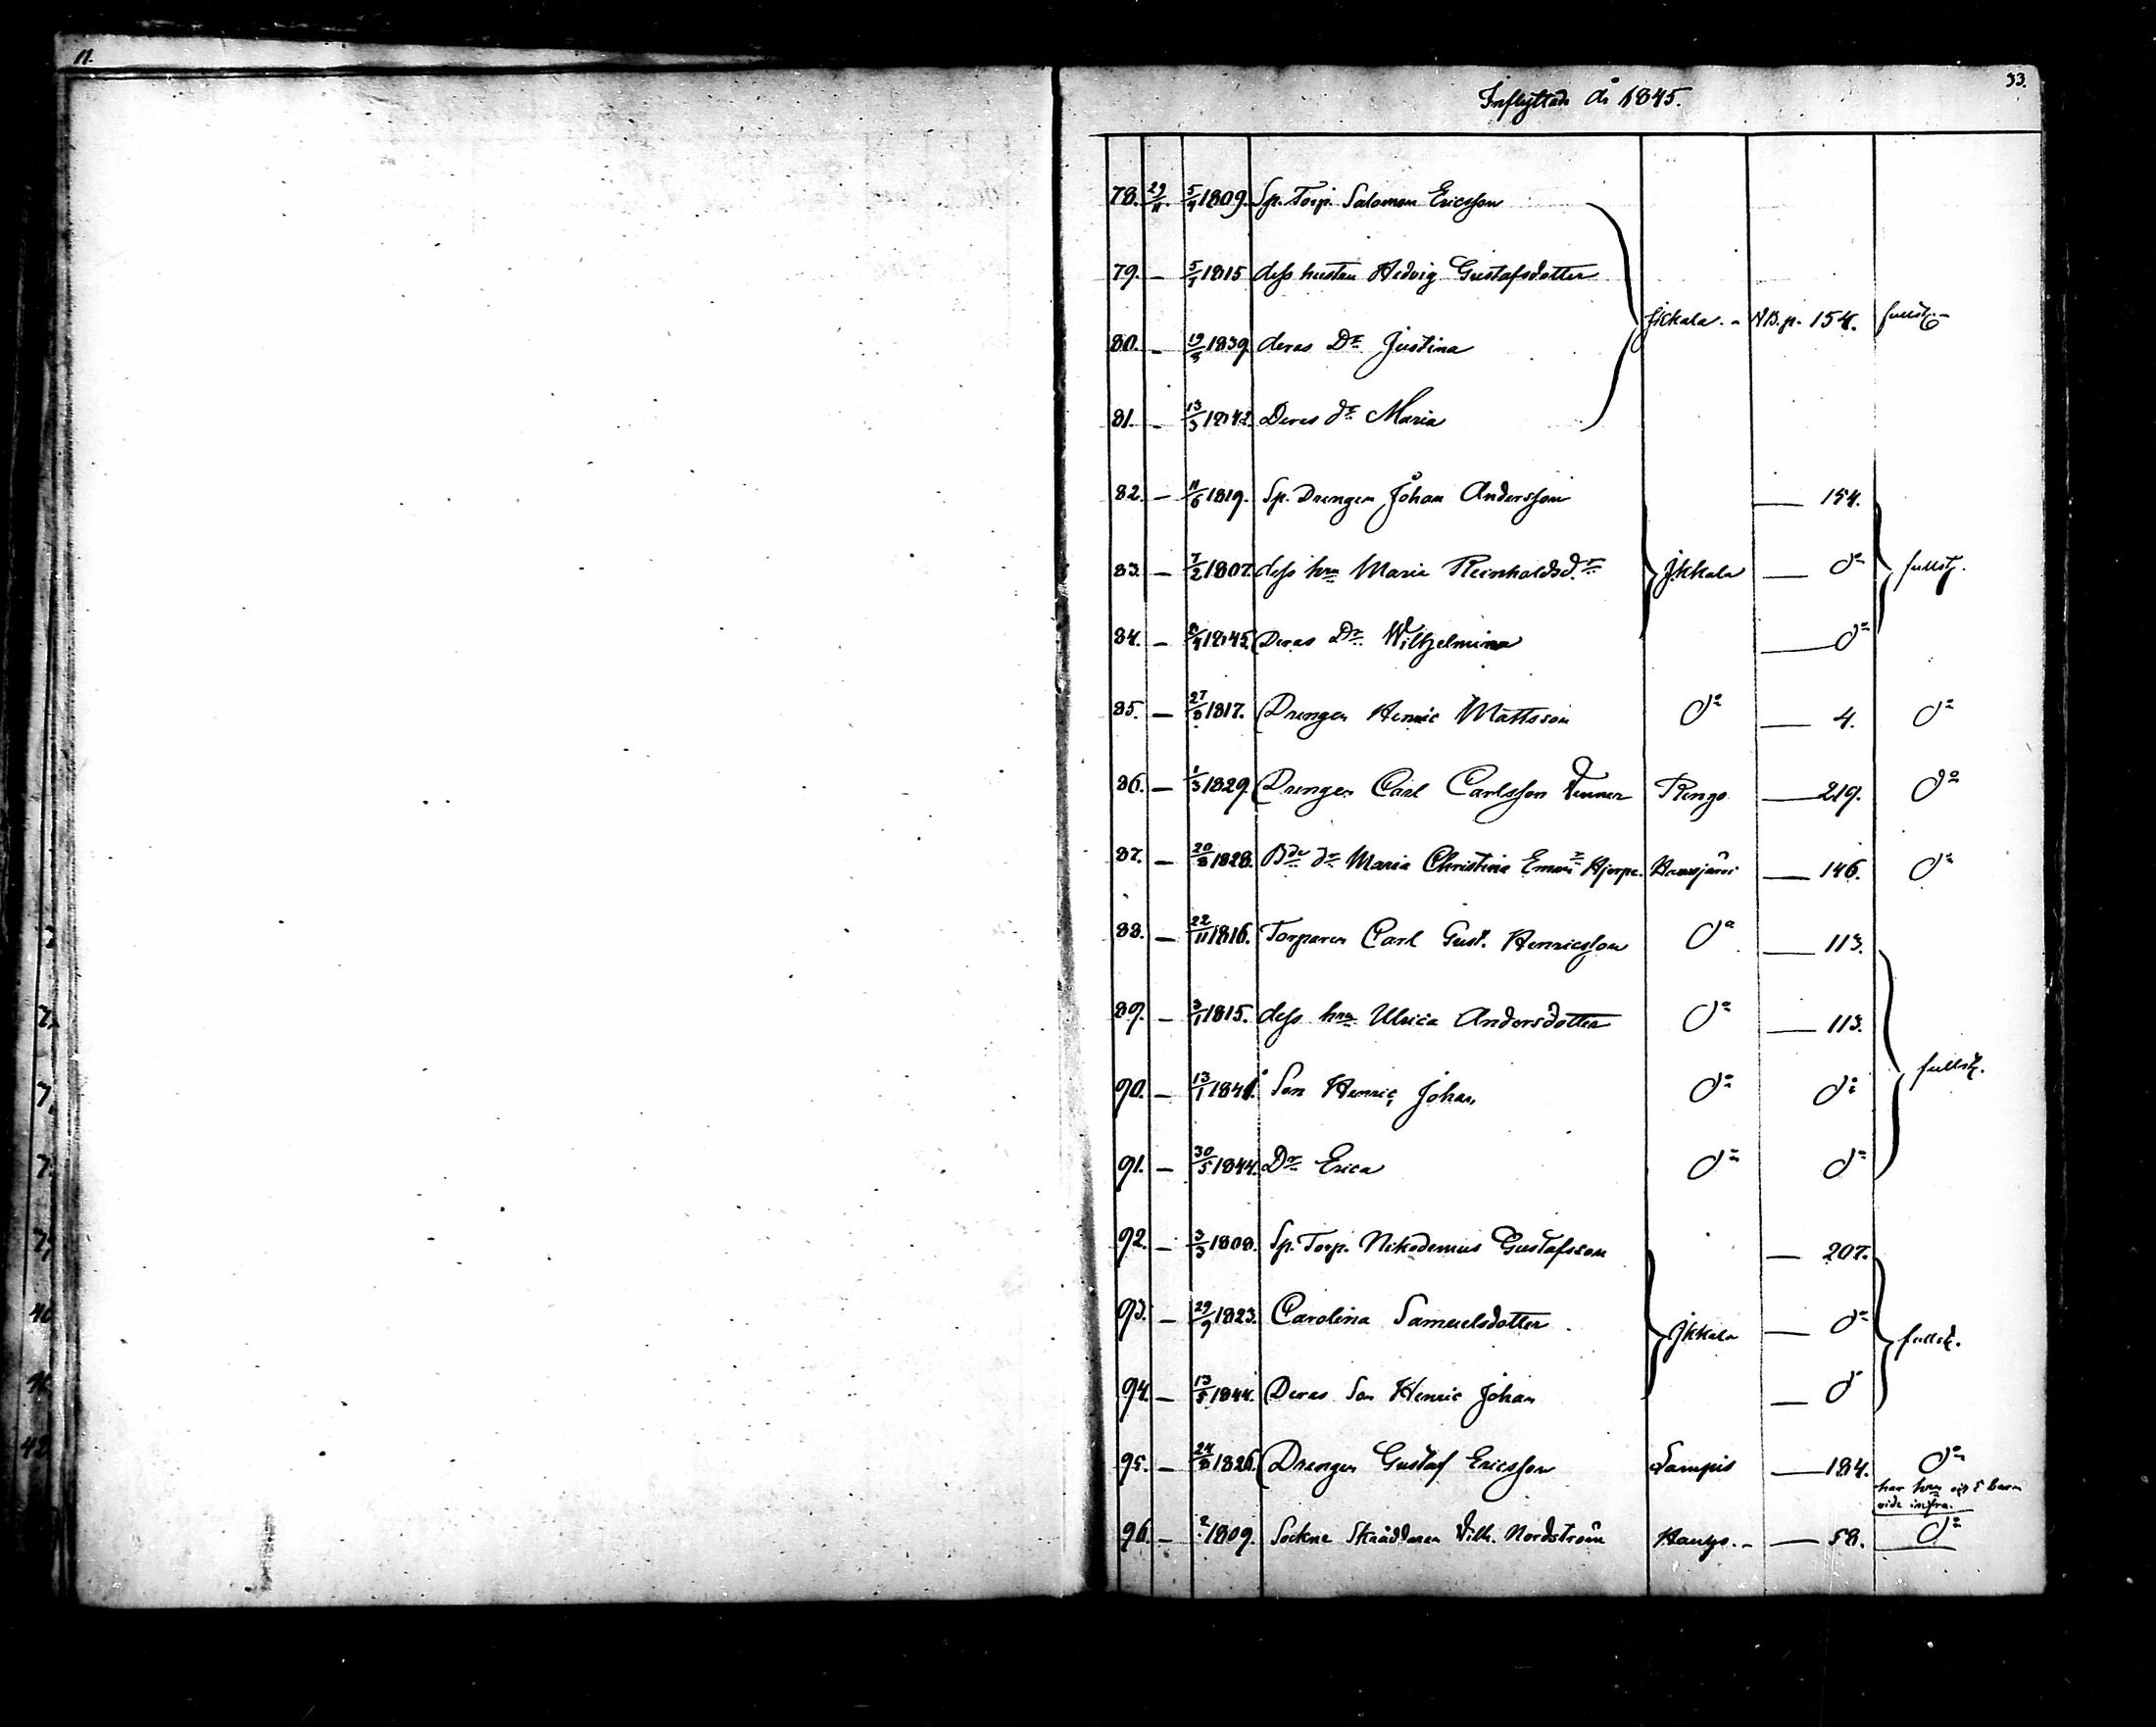 11.
33.
Inflyttade år 1845.
78. 29/11. 5/4 1809. Sp. Torp. Salomon Ericsson
79. — 5/1 1815 dess hustru Hedvig Gustafsdotter
Jkkala. - NB. p. 154. fullst.
80. — 19/5 1839. deras Dr Justina
81. — 13/3 1842. Deras dr Maria
82. — 11/6 1819. Sp. Drengen Johan Andersson — 154.
83. — 7/2 1807. dess hru Maria Reinholdsdr Jkkala — do fullst.
84. — 1845. Deras Dr Wilhjelmina — do
85. — 27/8 1817. Drengen Henric Mattsson do — 4. do
86. — 1/3 1829. Drengen Carl Carlsson Rengo — 219. do
87. — 20/8 1828. Maria Christina Hjerpe. Hausjärvi — 146. do
88. — 22/11 1816. Torparen Carl Gust. Henricsson do — 113.
89. — 3/1 1815. dess hru Ulrica Andersdotter do — 113.
fullst.
90. — 13/1 1841. Son Henric Johan do do
91. — 30/5 1844. Dr Erica do do
92. — 3/3 1808. Sp. Torp. Nikodemus Gustafsson — 207.
93. — 29/9 1823. Carolina Samuelsdotter Jkkala — do fullst.
94. — 13/5 1844. Deras Son Henric Johan — do
95. — 24/8 1826. Drengen Gustaf Ericsson Lampis — 184. do
har hru och 5 barn
vide infra.
96. — 1809. Sockne Skräddaren Vilh. Nordström Hauho. - — 58. do